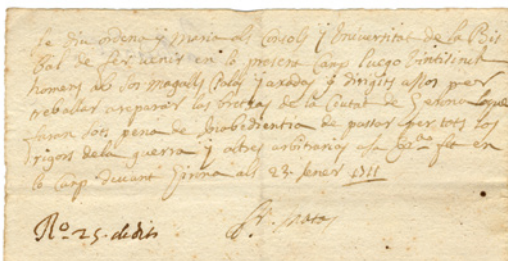 Se diu ordena y mana als Consols y Universitat de la Bis
bal de fer venir en lo present Camp luego vintisinch
homens ab sos magalls Palas y axadas y dirigits assos per
treballar a reparar las bretxas de la Ciutat de Gerona lo que
faran sots pena de inobedientia de passar per tots los
rigors de la guerra y altres arbitrarias a sa Ex.ª fet en
lo Camp devant Girona als 23 Jener 1711
R.º 25. de dits